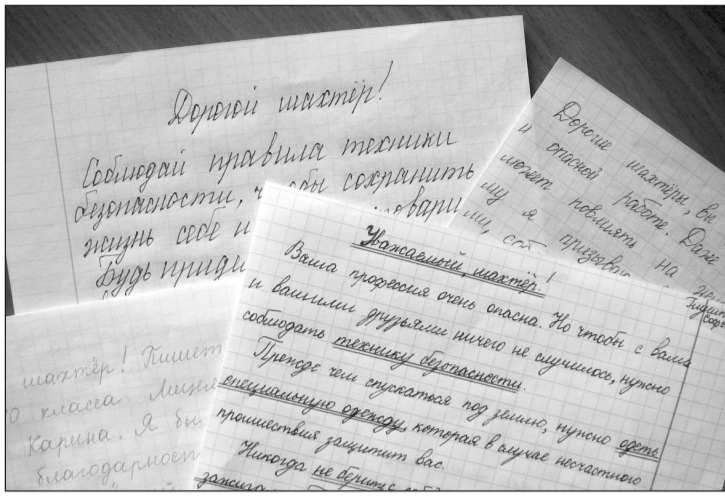 Дорогой шахтёр!
Соблюдай правила техники
безопасности, чтобы сохранить
жизнь себе и
Будь
Дорогие шахтёры, вы
и опасной работе. Даже
может повлиять на
му я призываю
Уважаемый, шахтёр!
Ваша профессия очень опасна. Но чтобы с вами
и вашими друзьями ничего не случилось, нужно
соблюдать технику безопасности.
Прежде чем спускаться под землю, нужно одеть
специальную одежду, которая в случае несчастного
проишествия защитит вас.
Никогда не берите с
шахтёр! Пишет
класса
Карина. Я бы
благодарност